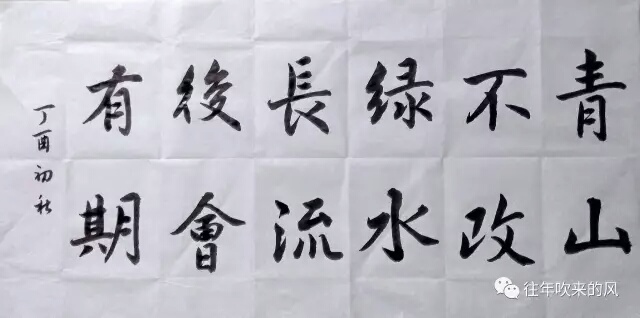 青山
不改
绿水
長流
後會
有期
丁酉初秋
往年吹来的风